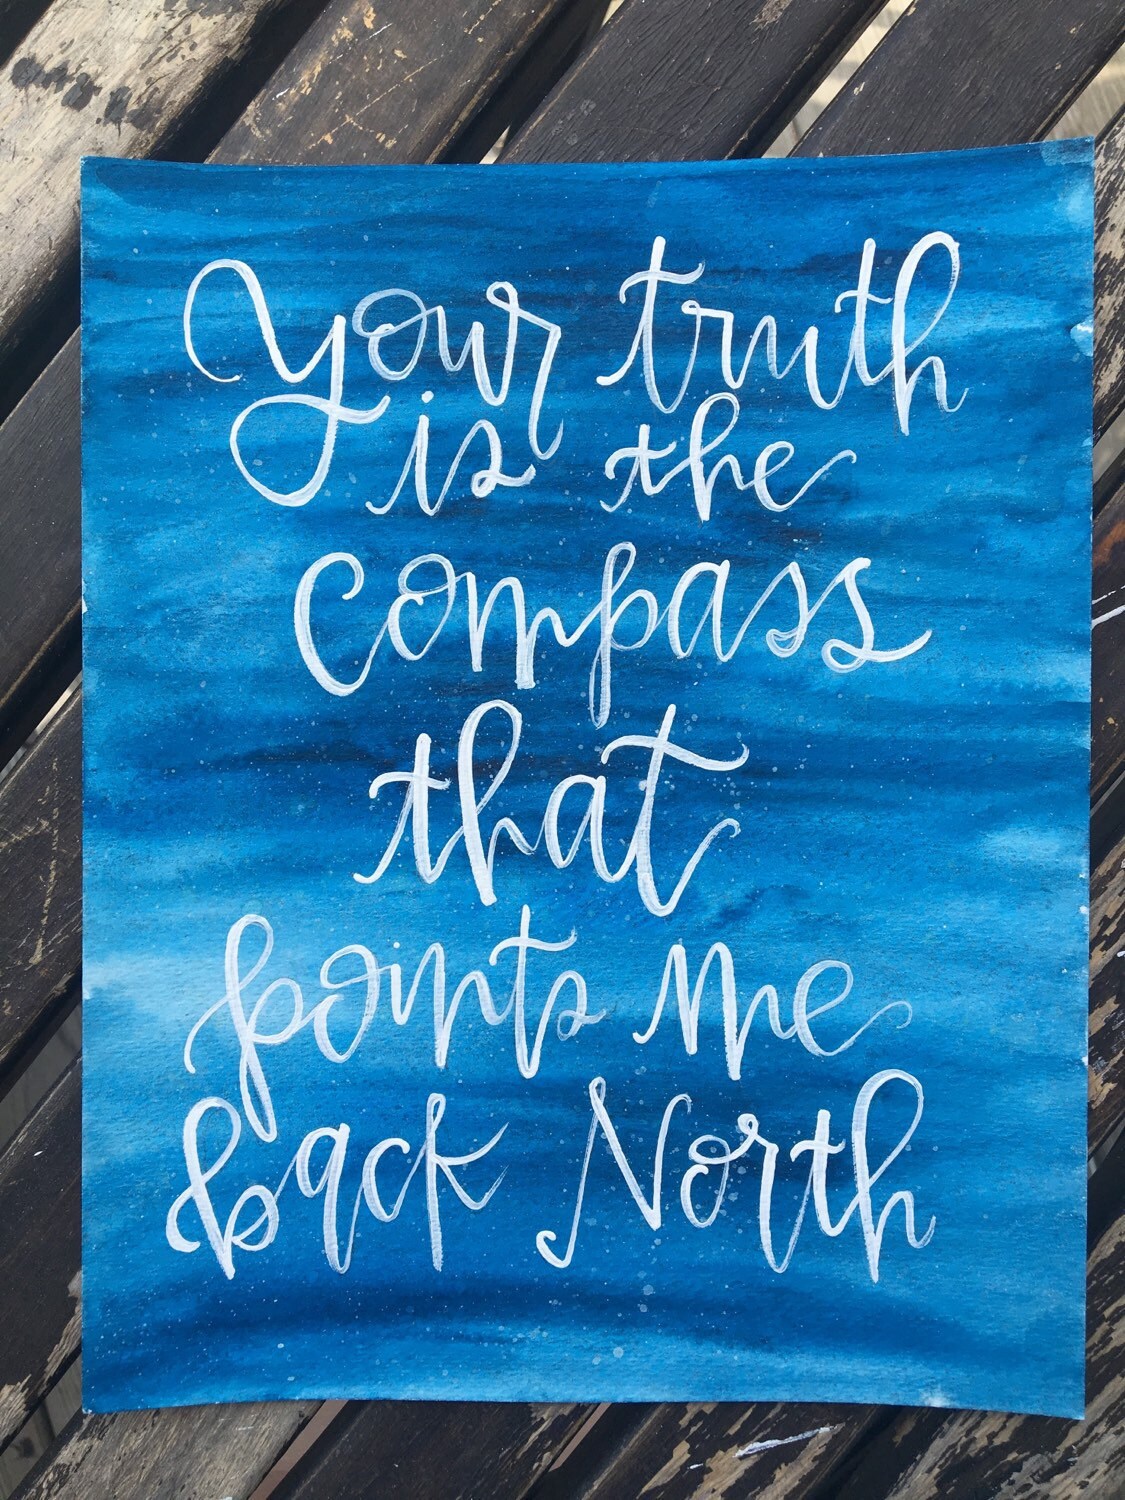 Your truth
is the
compass
that
points me
back North